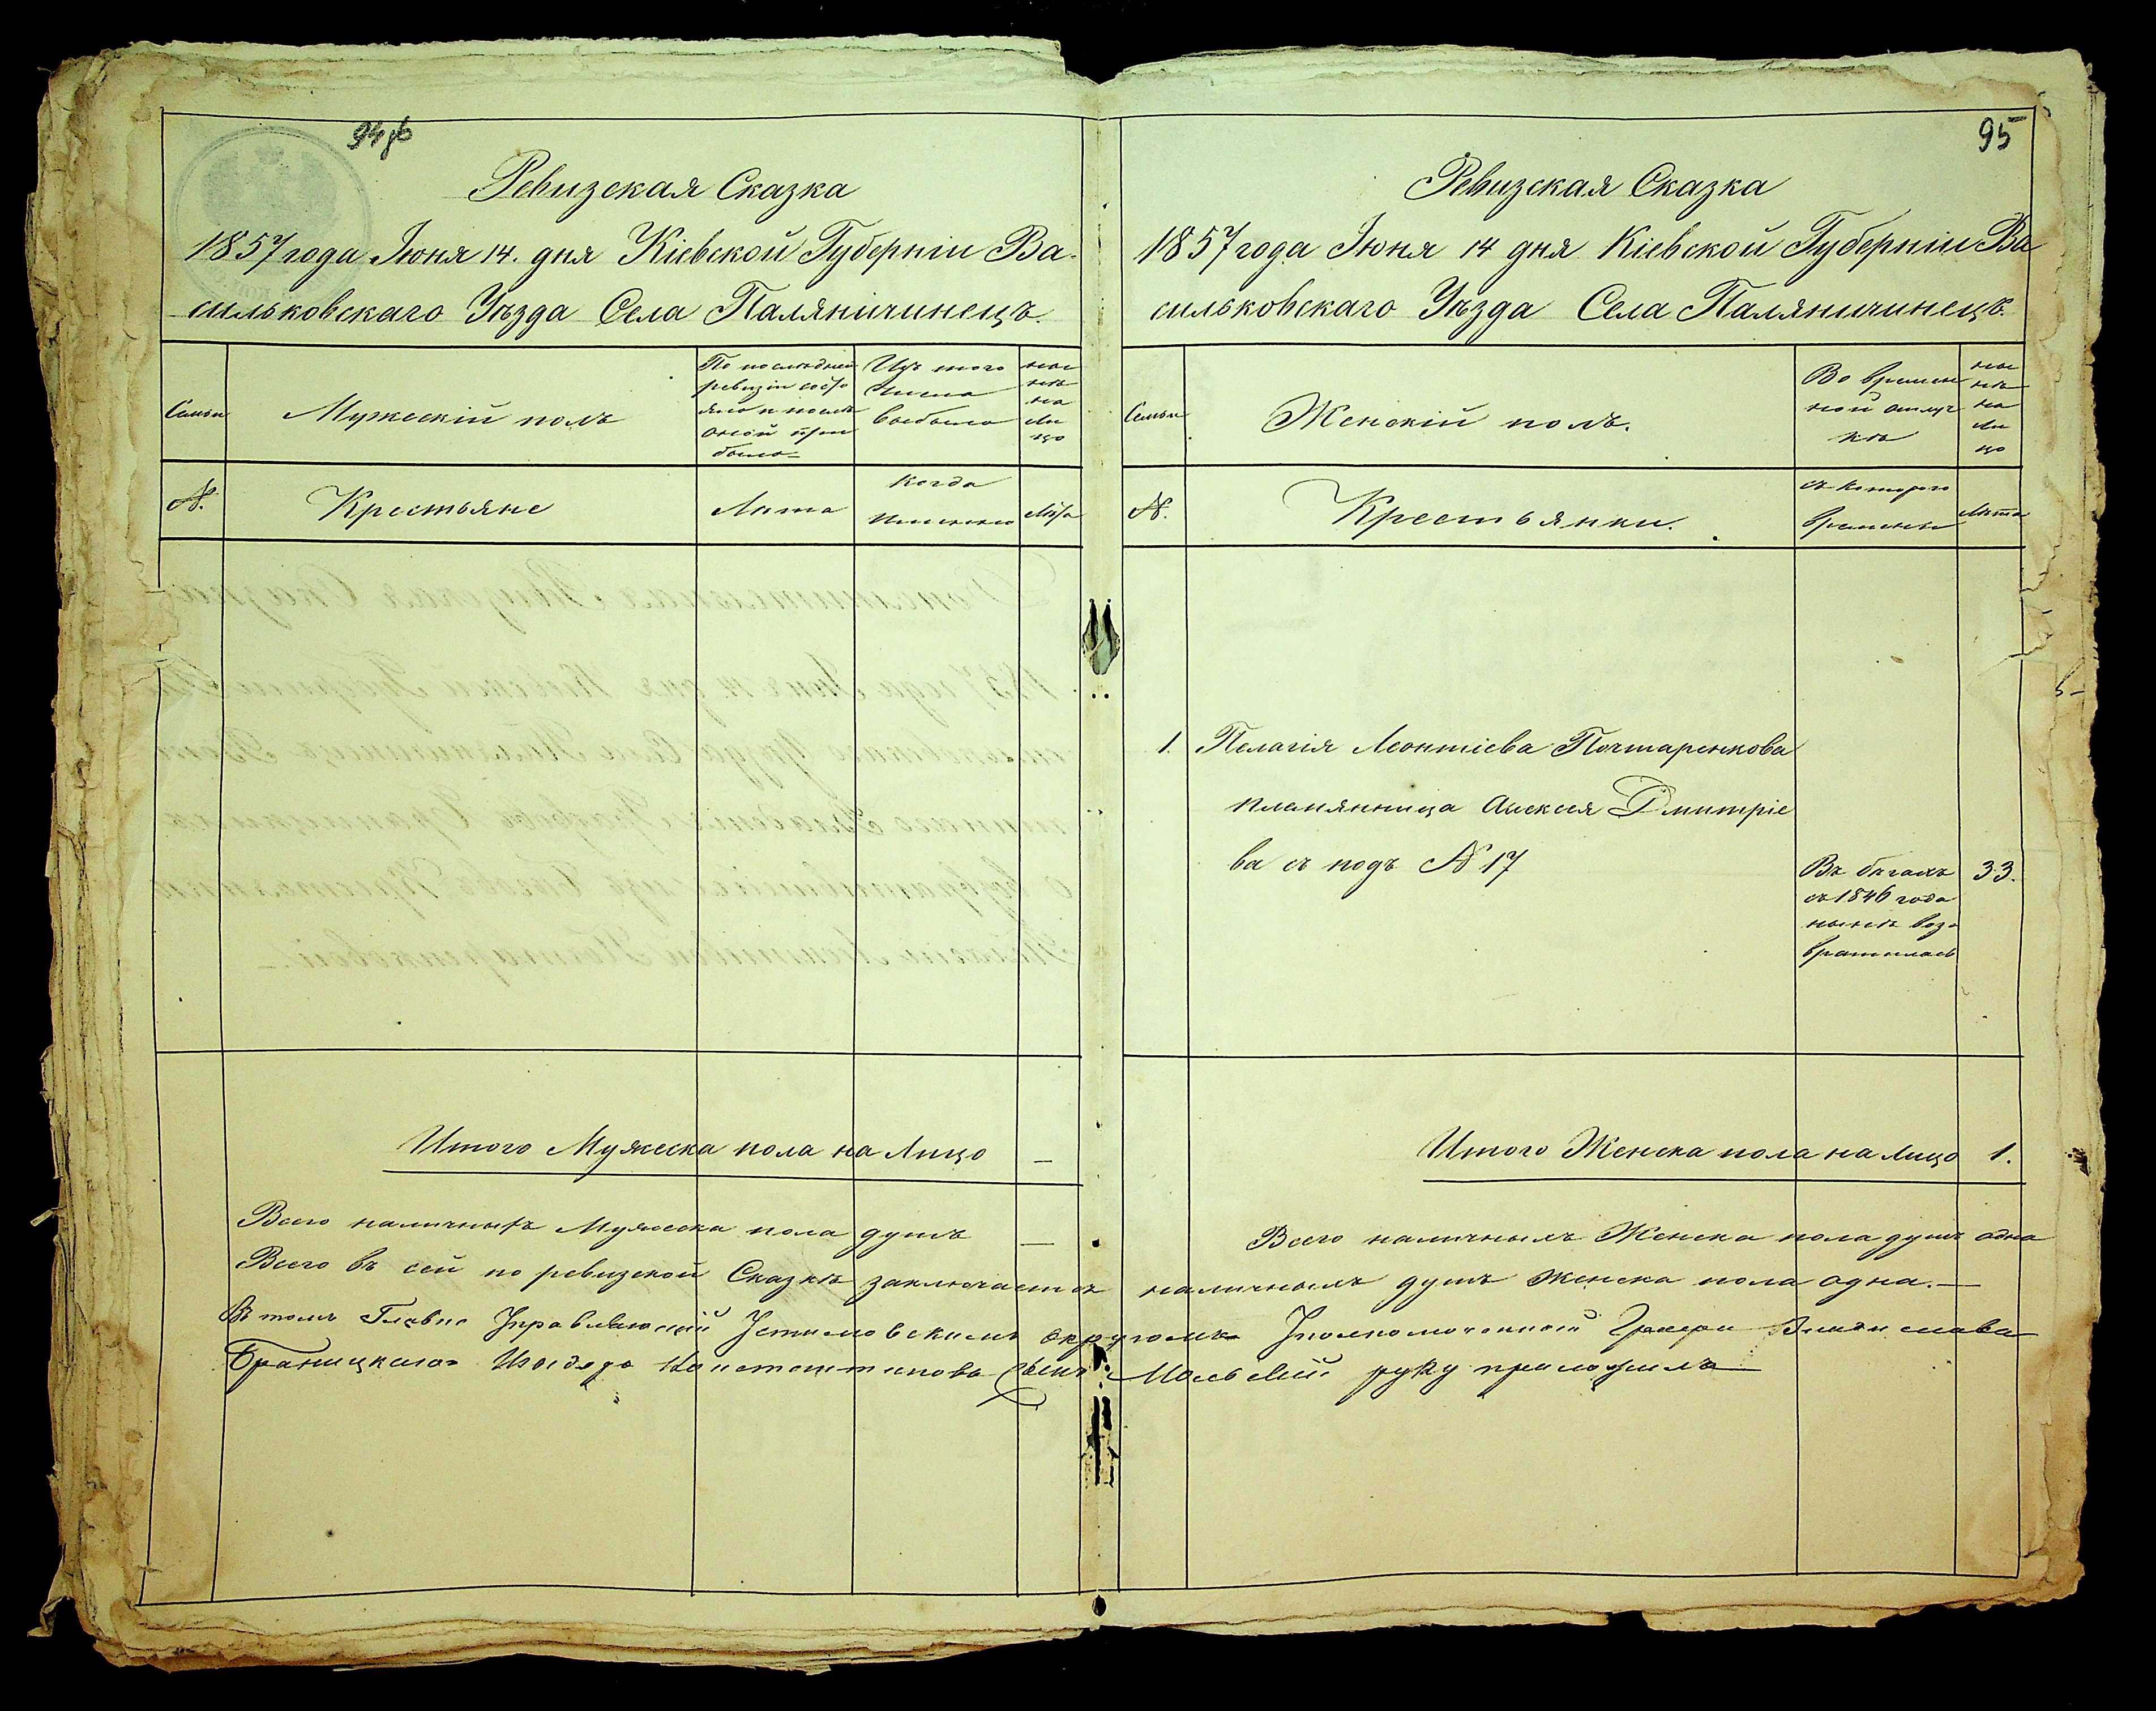 94об
Ревизская Сказка
1857 года Июня 14. дня Кіевской Губерніи Ва-
сильковскаго Уѣзда Села Паляничинецъ.
Семьи
Мужескій полъ
По послѣдней
ревизіи состо
яло и послѣ
оной при
было
Изъ того
числа
выбыло
ны
нѣ
на
ли
цо
№.
Крестьяне
Лѣта
Когда
именно
Лѣта
Итого Мужеска пола на лицо —
Всего наличныхъ Мужеска пола душъ —
95
Ревизская Сказка
1857 года Июня 14 дня Кіевской Губерніи Ва
сильковскаго Уѣзда Села Паляничинецъ.
Семьи
Женскій полъ.
Во времен
ной отлуч
кѣ
ны
нѣ
на
ли
цо
№.
Крестьянки.
съ котораго
времени
Лѣта
1. Пелагія Леонтіева Почтаренкова
племянница Алексея Дмитріе
ва съ подъ № 17
Въ бегахъ
съ 1846 года
нынѣ воз
вратилась
33.
Итого Женска пола на лицо 1.
Всего наличныхъ Женска пола душъ одна
Всего въ сей по ревизской Сказкѣ заключается наличныхъ душъ Женска пола одна.—
Въ томъ Главно Управляющій Устимовскимъ округомъ Уполномоченный Графа Владислава
Браницкаго Изыдоръ Константиновъ сынъ руку приложилъ